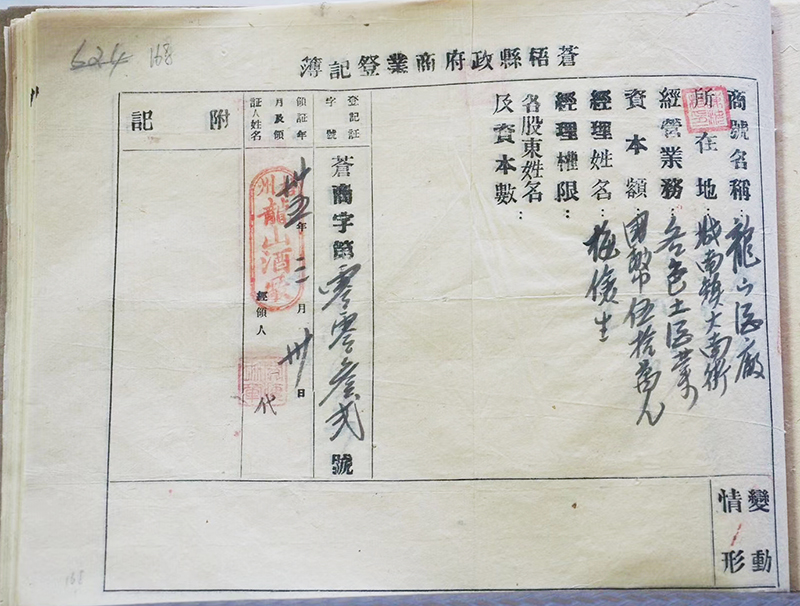 624 168
蒼梧縣政府商業登記簿
商號名稱：龍山酒廠
所在地：城南鎮大南街
經營業務：各色土酒業
資本額：國幣伍拾萬元
經理姓名：梅俊生
經理權限：
各股東姓名：
及資本數
登記証字號 蒼商字第零零叁弍號
領証年月及領証人姓名 卅五年三月卅日
經領人 代
州龍山酒
附記
變動情形
168